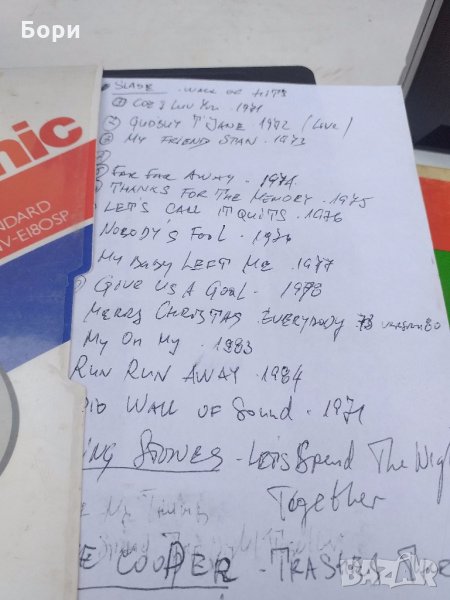 Бори
SLADE . WALL OF HITS
COZ I LUV YOU . 1971
GUDBUY T'JANE . 1972 (LIVE)
MY FRIEND STAN . 1973
FAR FAR AWAY . 1974
THANKS FOR THE MEMORY . 1975
LET'S CALL IT QUITS . 1976
NOBODY S FOOL . 1976
MY BABY LEFT ME . 1977
GIVE US A GOAL . 1978
MERRY CHRISTAS EVERYBODY 73 VERSION 80
MY OH MY . 1983
RUN RUN AWAY . 1984
WALL OF SOUND . 1971
ING STONES - LET'S SPEND THE NIG
TOGETHER
E COOPER - TRASHES
nic
NDARD
V-E180SP
bazar